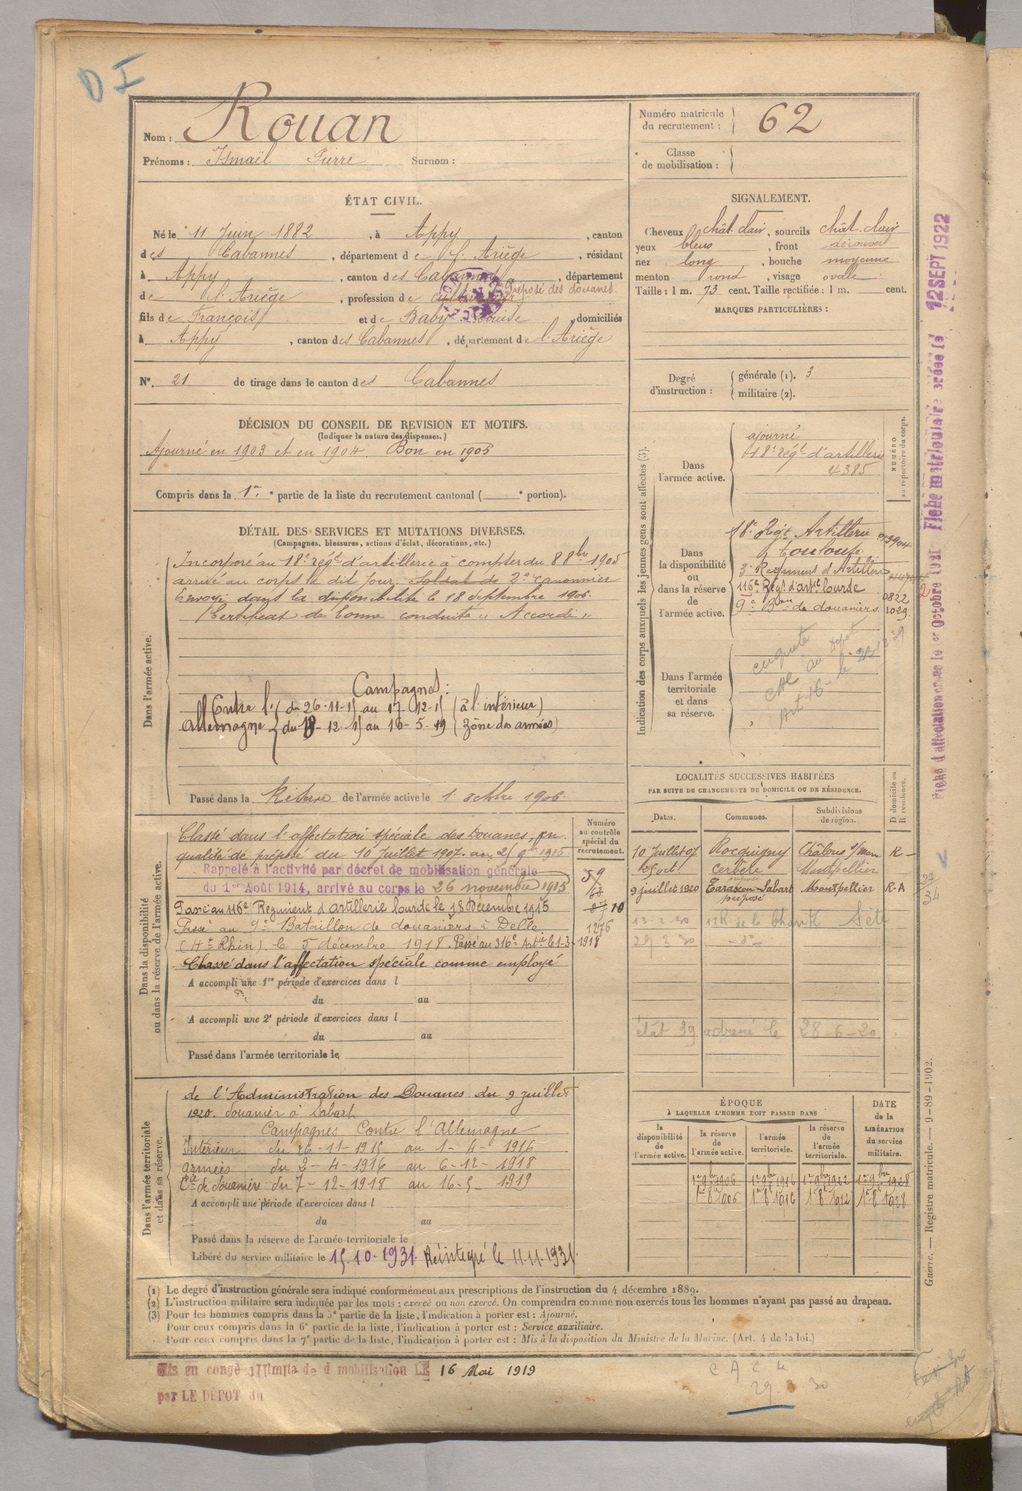 D I
Nom : Rouan
Prénoms : Ismaël Pierre Surnom :
Numéro matricule du recrutement : 62
Classe de mobilisation :
ÉTAT CIVIL.
Né le 11 Juin 1882, à Appy, canton
des Cabannes, département de l'Ariège, résidant
à Appy, canton des Cabannes, département
de l'Ariège, profession de Préposé des douanes
fils de François et de Baby Louise domiciliés
à Appy, canton des Cabannes, département de l'Ariège
N° 21 de tirage dans le canton des Cabannes
SIGNALEMENT.
Cheveux chât. clair, sourcils chât. clair
yeux bleus, front découvert
nez long, bouche moyenne
menton rond, visage ovale
Taille : 1 m. 73 cent. Taille rectifiée : 1 m. cent.
MARQUES PARTICULIÈRES :
Degré d'instruction : générale (1). 3
militaire (2).
DÉCISION DU CONSEIL DE REVISION ET MOTIFS.
(Indiquer la nature des dispenses.)
Ajourné en 1903 et en 1904. Bon en 1905
Compris dans la 1re partie de la liste du recrutement cantonal ( e portion).
DÉTAIL DES SERVICES ET MUTATIONS DIVERSES.
(Campagnes, blessures, actions d'éclat, décorations, etc.)
Dans l'armée active.
Incorporé au 18e régt d'artillerie à compter du 8 8bre 1905
arrivé au corps le dit jour, Soldat de 2e canonnier
Envoyé dans la disponibilité le 18 Septembre 1906.
Certificat de bonne conduite "Accordé".
Campagnes :
Contre l' du 26-11-15 au 17-12-15 (à l'intérieur)
Allemagne du 18-12-15 au 16-5-19 (zône des armées)
Passé dans la Réserve de l'armée active le 1 octobre 1906.
Indication des corps auxquels les jeunes gens sont affectés (3).
NUMÉRO au répertoire du corps.
Dans l'armée active.
ajourné
18e régt d'artillerie
4385
Dans la disponibilité ou dans la réserve de l'armée active.
18e Régt Artillerie
Toulouse
3e Régiment d'Artillerie
116e Régt d'artie lourde 0822
9e Bon de douaniers 1029
Dans l'armée territoriale et dans sa réserve.
LOCALITÉS SUCCESSIVES HABITÉES
PAR SUITE DE CHANGEMENTS DE DOMICILE OU DE RÉSIDENCE.
Dates. Communes. Subdivisions de région. D domicile ou R résidence.
10 Juillet 07 Rocquigny Châlons s/Marne R
Cerbère Montpellier
9 juillet 1920 Tarascon Sabart Montpellier R-A
préposé
29 3 30
28-6-20
Dans la disponibilité ou dans la réserve de l'armée active.
Numéro au contrôle spécial du recrutement.
Classé dans l'affectation spéciale des Douanes, en
qualité de préposé du 10 Juillet 1907 au 25 9bre 1915
Rappelé à l'activité par décret de mobilisation générale
du 1er Août 1914, arrivé au corps le 26 novembre 1915
Passé au 116e Régiment d'artillerie lourde le 18 Décembre 1915
Passé au 9e Bataillon de douaniers à Delle
(Ht Rhin) le 5 décembre 1918. Passé au 316e Artie
Classé dans l'affectation spéciale comme employé
A accompli une 1re période d'exercices dans l
du au
A accompli une 2e période d'exercices dans l
du au
Passé dans l'armée territoriale le
Dans l'armée territoriale et dans sa réserve.
de l'Administration des Douanes du 9 juillet
1920. douanier à Sabart
Campagnes Contre l'Allemagne
Intérieur du 26-11-1915 au 1-4-1916
armées du 2-4-1916 au 6-12-1918
Cie de douaniers du 7-12-1918 au 16-5-1919
A accompli une période d'exercices dans l
du au
Passé dans la réserve de l'armée territoriale le
Libéré du service militaire le 15.10-1931. Réintégré le 11.11.1931.
ÉPOQUE
À LAQUELLE L'HOMME DOIT PASSER DANS
la disponibilité de l'armée active. la réserve de l'armée active. l'armée territoriale. la réserve de l'armée territoriale. DATE de la LIBÉRATION du service militaire.
1er 9bre 1906 1er 9bre 1916 1er 9bre 1922 1er 9bre 1928
(1) Le degré d'instruction générale sera indiqué conformément aux prescriptions de l'instruction du 4 décembre 1889.
(2) L'instruction militaire sera indiquée par les mots : exercé ou non exercé. On comprendra comme non exercés tous les hommes n'ayant pas passé au drapeau.
(3) Pour les hommes compris dans la 5e partie de la liste, l'indication à porter est : Ajourné.
Pour ceux compris dans la 6e partie de la liste, l'indication à porter est : Service auxiliaire.
Pour ceux compris dans la 7e partie de la liste, l'indication à porter est : Mis à la disposition du Ministre de la Marine. (Art. 4 de la loi.)
Mis en congé illimité de démobilisation LE 16 Mai 1919
par LE DÉPOT du
29 3 30
Guerre. — Registre matricule. — 9-89-1902.
Fiche matriculaire créée le 12 SEPT 1922